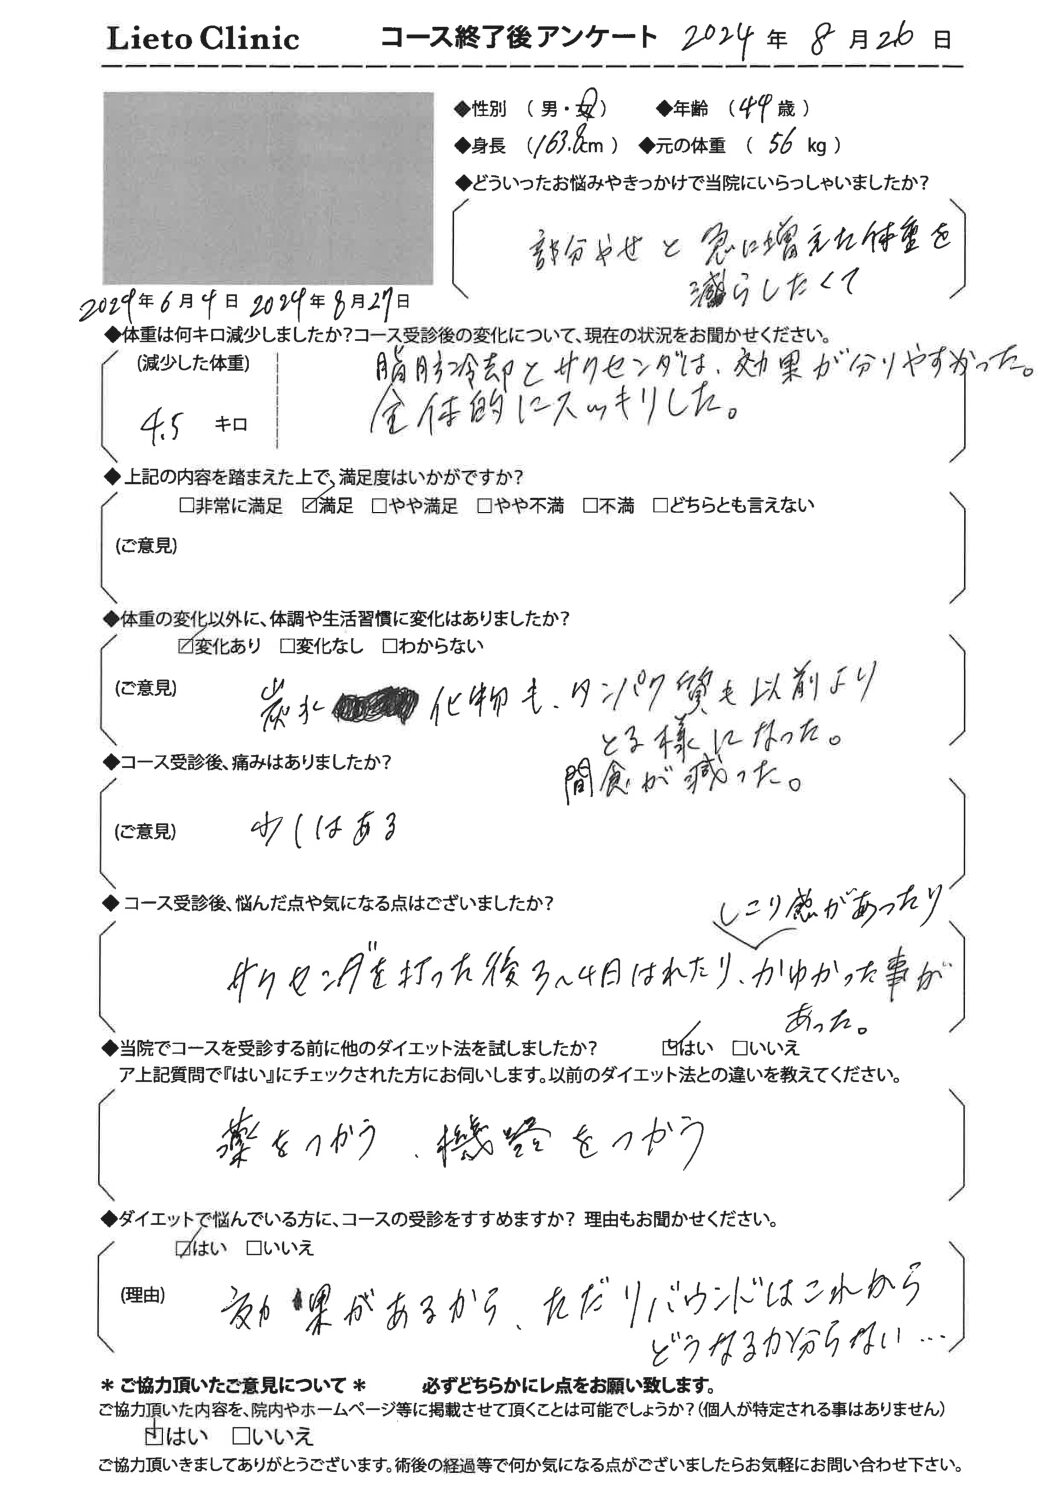 Lieto Clinic コース終了後アンケート 2024年8月26日
◆性別 (男・女) ◆年齢 (44歳)
◆身長 (163.8cm) ◆元の体重 (56kg)
◆どういったお悩みやきっかけで当院にいらっしゃいましたか?
部分やせと急に増えた体重を
減らしたくて
2024年6月4日 2024年8月27日
◆体重は何キロ減少しましたか?コース受診後の変化について、現在の状況をお聞かせください。
(減少した体重)
4.5 キロ
脂肪冷却とサクセンダは、効果が分りやすかった。
全体的にスッキリした。
◆上記の内容を踏まえた上で、満足度はいかがですか?
□非常に満足 ☑満足 □やや満足 □やや不満 □不満 □どちらとも言えない
(ご意見)
◆体重の変化以外に、体調や生活習慣に変化はありましたか?
☑変化あり □変化なし □わからない
(ご意見) 炭水化物も、タンパク質も以前より
とる様になった。
間食が減った。
◆コース受診後、痛みはありましたか?
(ご意見) 少しはある
◆コース受診後、悩んだ点や気になる点はございましたか?
しこり感があったり
サクセンダを打った後3~4日はれたり、かゆかった事が
あった。
◆当院でコースを受診する前に他のダイエット法を試しましたか? ☑はい □いいえ
ア上記質問で『はい』にチェックされた方にお伺いします。以前のダイエット法との違いを教えてください。
薬をつかう、機器をつかう
◆ダイエットで悩んでいる方に、コースの受診をすすめますか? 理由もお聞かせください。
☑はい □いいえ
(理由) 効果があるから、ただリバウンドはこれから
どうなるか分らない…
*ご協力頂いたご意見について* 必ずどちらかにレ点をお願い致します。
ご協力頂いた内容を、院内やホームページ等に掲載させて頂くことは可能でしょうか?(個人が特定される事はありません)
☑はい □いいえ
ご協力頂いきましてありがとうございます。術後の経過等で何か気になる点がございましたらお気軽にお問い合わせ下さい。